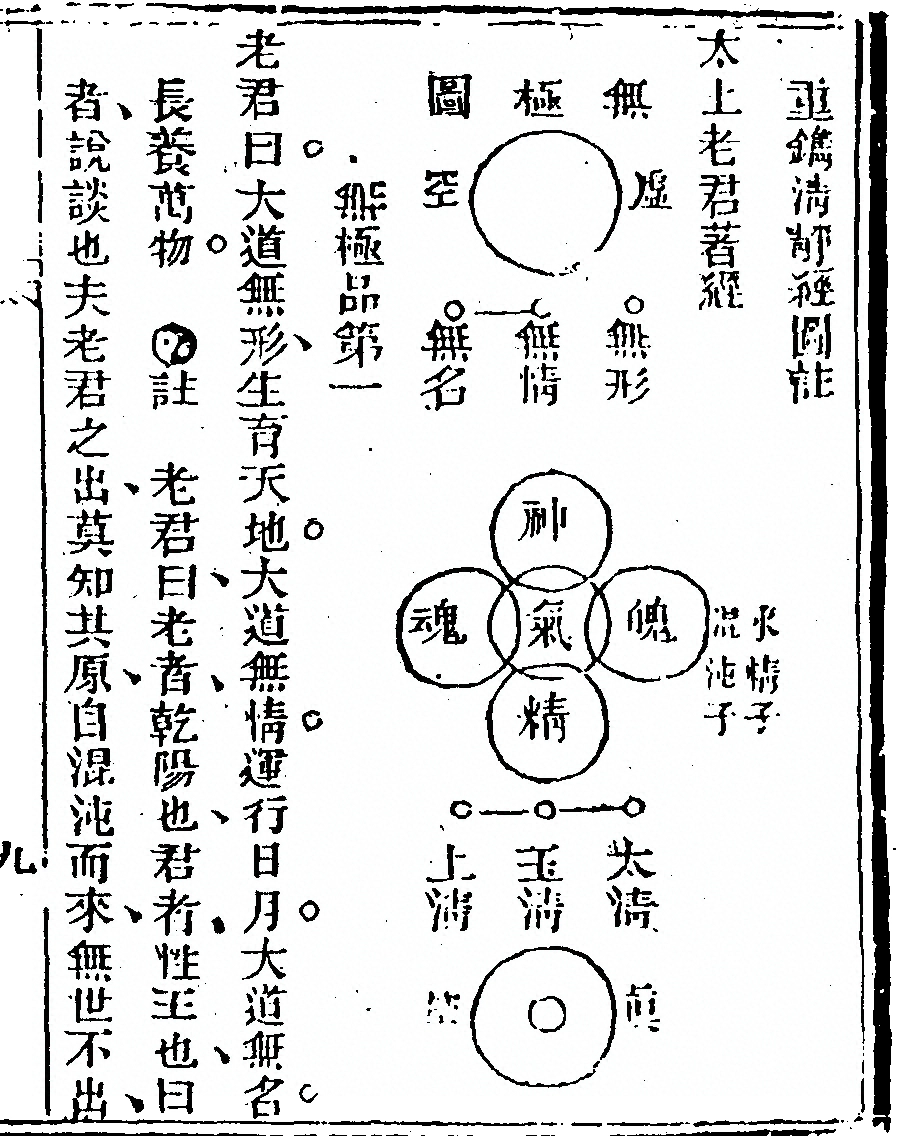 重鐫清靜經圖註
太上老君著經
水精子
混沌子
無極圖
虛空
無形
無情
無名
神
魄
氣
魂
精
太清
玉清
上清
真
空
無極品第一
老君曰大道無形生育天地大道無情運行日月大道無名
長養萬物 註 老君曰老者乾陽也君者性王也曰
者說談也夫老君之出莫知其原自混沌而來無世不出
九